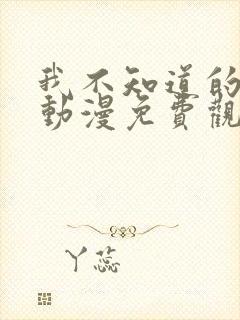 我不知道的
動漫免費觀
丫蕊